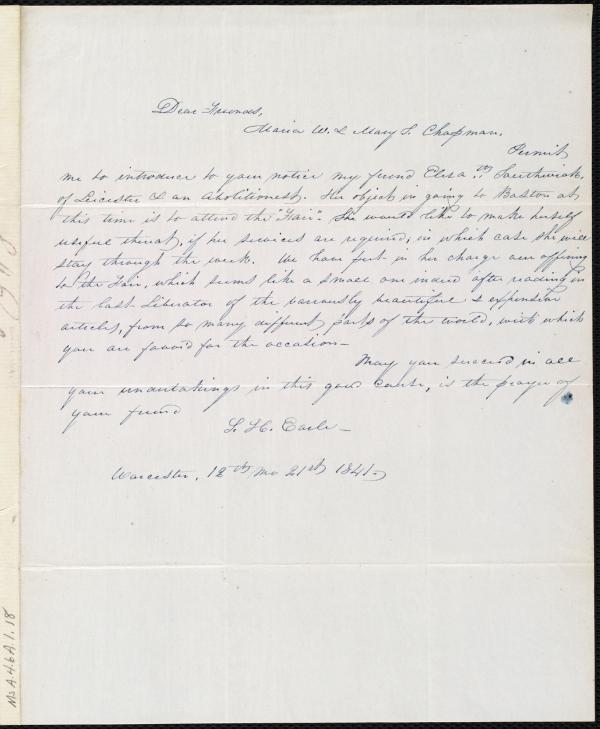 Dear Friends,
Maria W. & Mary G. Chapman,
Permit
me to introduce to your notice my friend Eliza th Southwick,
of Leicester & an Abolitionest. Her object in going to Boston at
this time is to attend the "Fair". She would like to make herself
useful thereat, if her services are required, in which case she will
stay through the week. We have put in her charge our offering
to the Fair, which seems like a small one indeed after reading in
the last Liberator of the variously beautiful & expensive
articles, from so many different parts of the world, with which
you are favord for the occasion—
May you succeed in all
your undertakings in this good cause, is the prayer of
your friend
S. H. Earle—
Worcester, 12th, mo 21st 1841—
Ms.A.4.6A.1.18